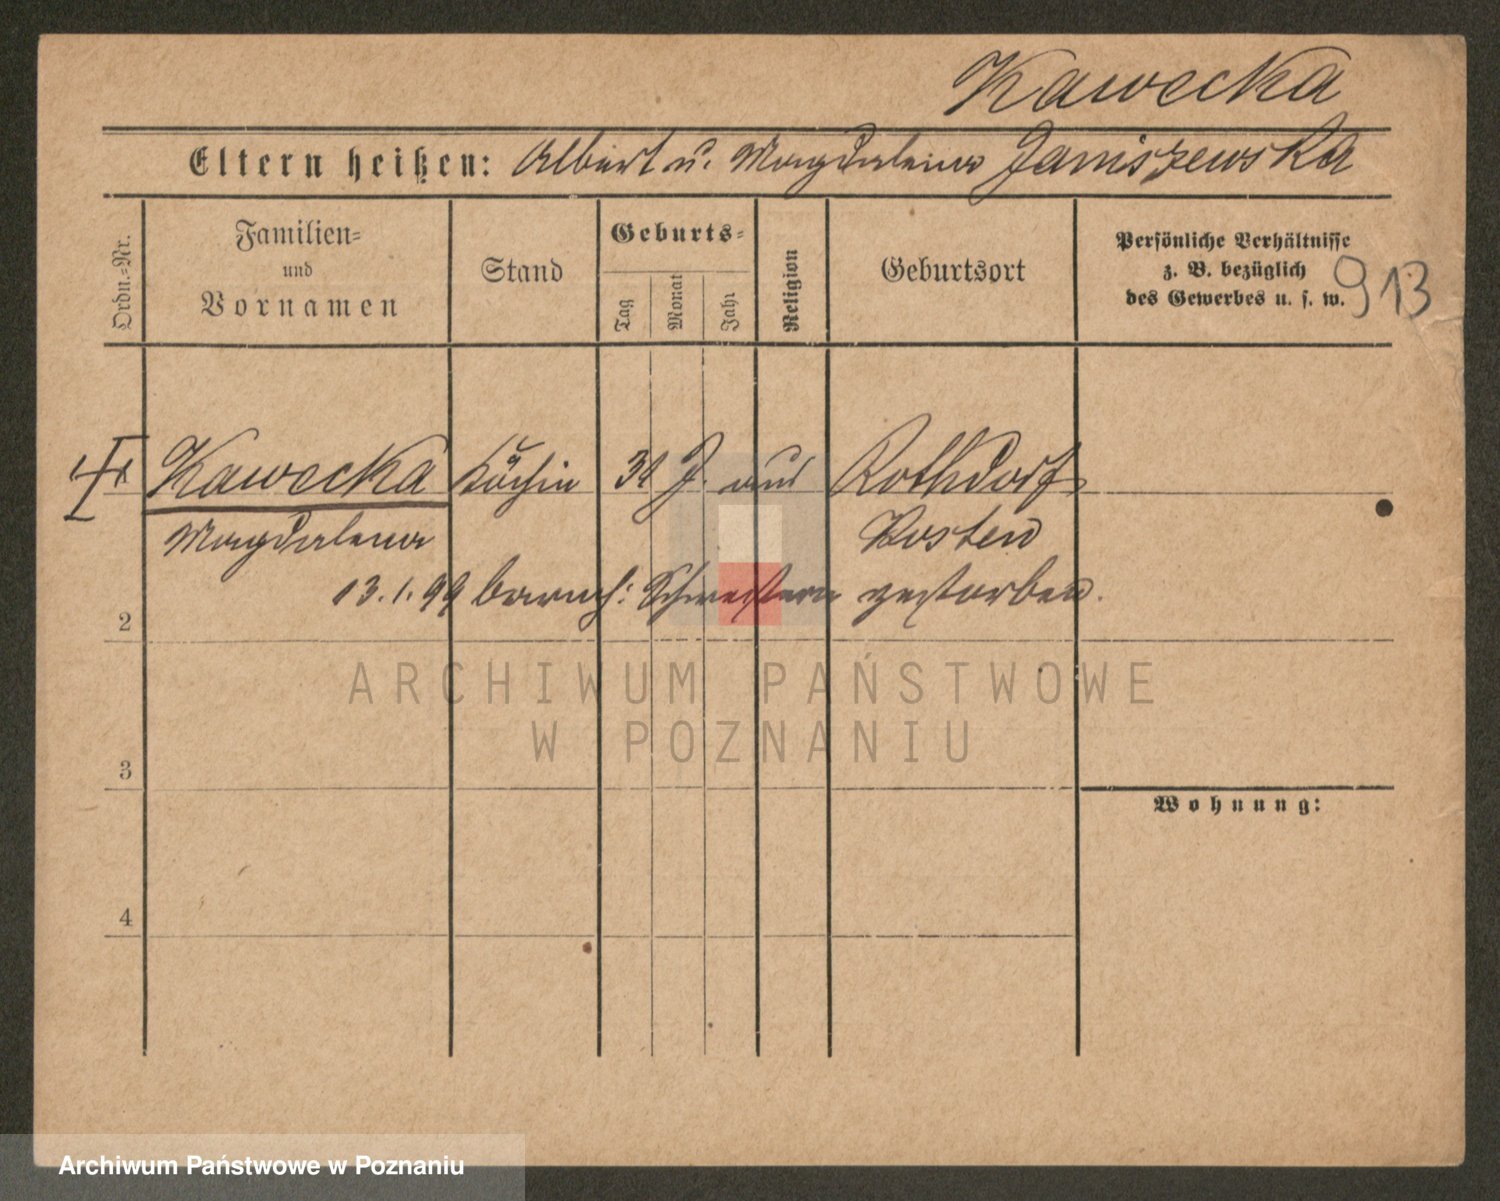 Kawecka
Eltern heißen: Albert u. Magdalena Janiszewska
Ordn.-Nr.
Familien-
und
Vornamen
Stand
Geburts-
Tag
Monat
Jahr
Religion
Geburtsort
Persönliche Verhältnisse
z. B. bezüglich
des Gewerbes u. s. w.
913
Kawecka Köchin 31 J. aus Rothdorf
Magdalena Kosten
13.1.99 barmh: Schwestern gestorben.
2
3
Wohnung:
4
ARCHIWUM PAŃSTWOWE
W POZNANIU
Archiwum Państwowe w Poznaniu